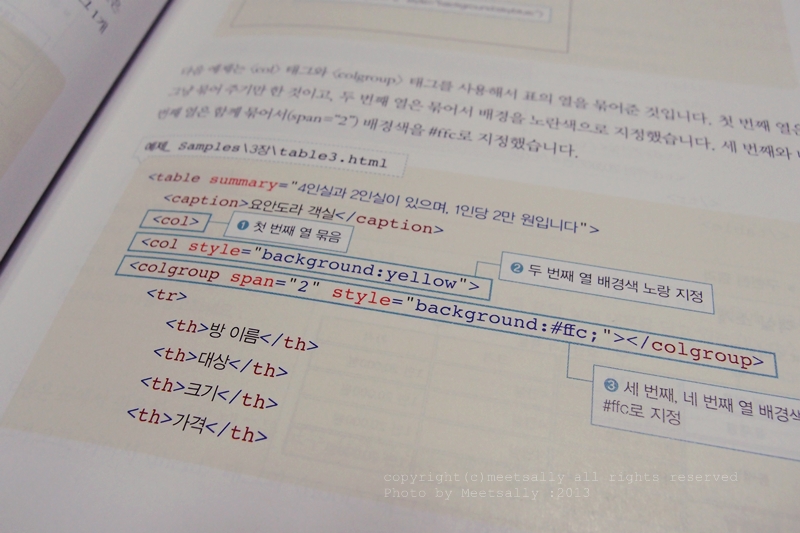 다음 예제는 <col> 태그와 <colgroup> 태그를 사용해서 표의 열을 묶어준 것입니다. 첫 번째 열은
그냥 묶어 주기만 한 것이고, 두 번째 열은 묶어서 배경을 노란색으로 지정했습니다. 세 번째와
번째 열은 함께 묶어서(span="2") 배경색을 #ffc로 지정했습니다.
예제 Samples\3장\table3.html
<table summary="4인실과 2인실이 있으며, 1인당 2만 원입니다">
<caption>요안도라 객실</caption>
<col> ❶ 첫 번째 열 묶음
<col style="background:yellow"> ❷ 두 번째 열 배경색 노랑 지정
<colgroup span="2" style="background:#ffc;"></colgroup>
<tr>
<th>방 이름</th>
<th>대상</th>
<th>크기</th>
<th>가격</th>
❸ 세 번째, 네 번째 열 배경색
#ffc로 지정
copyright(c)meetsally all rights reserved
Photo by Meetsally :2013